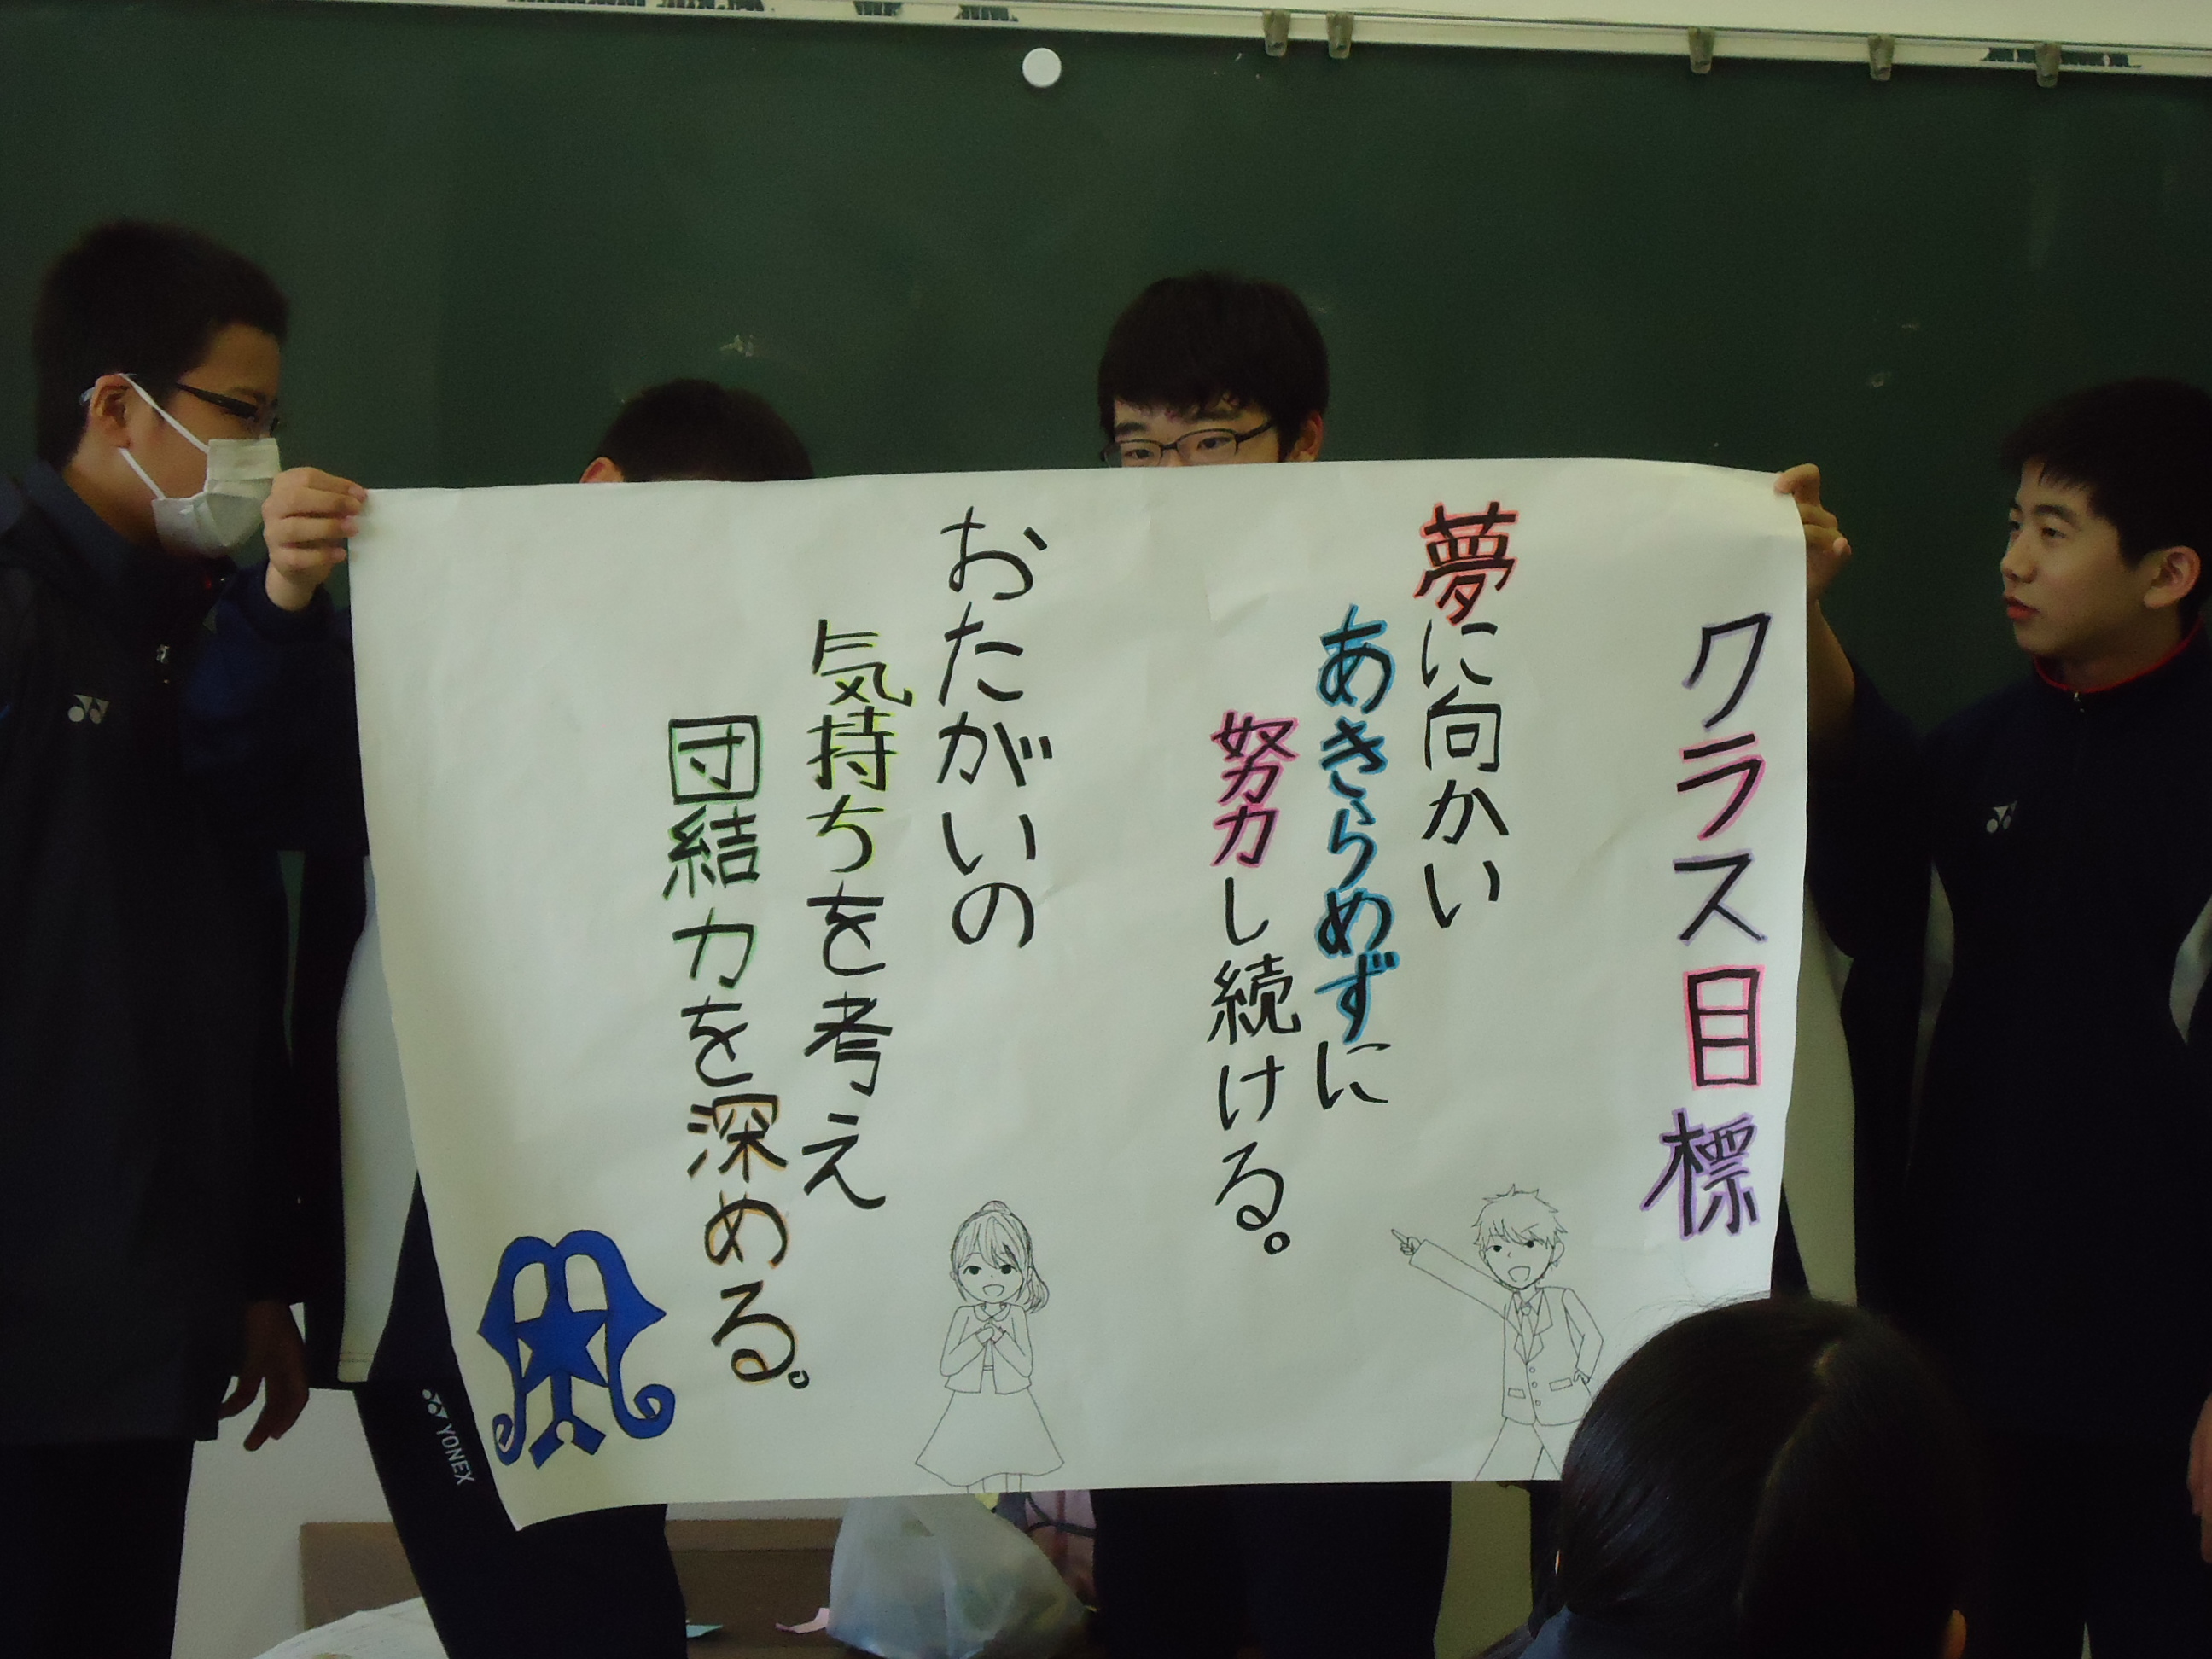 クラス目標
夢に向かい
あきらめずに
努力し続ける。
おたがいの
気持ちを考え
団結力を深める。
YONEX